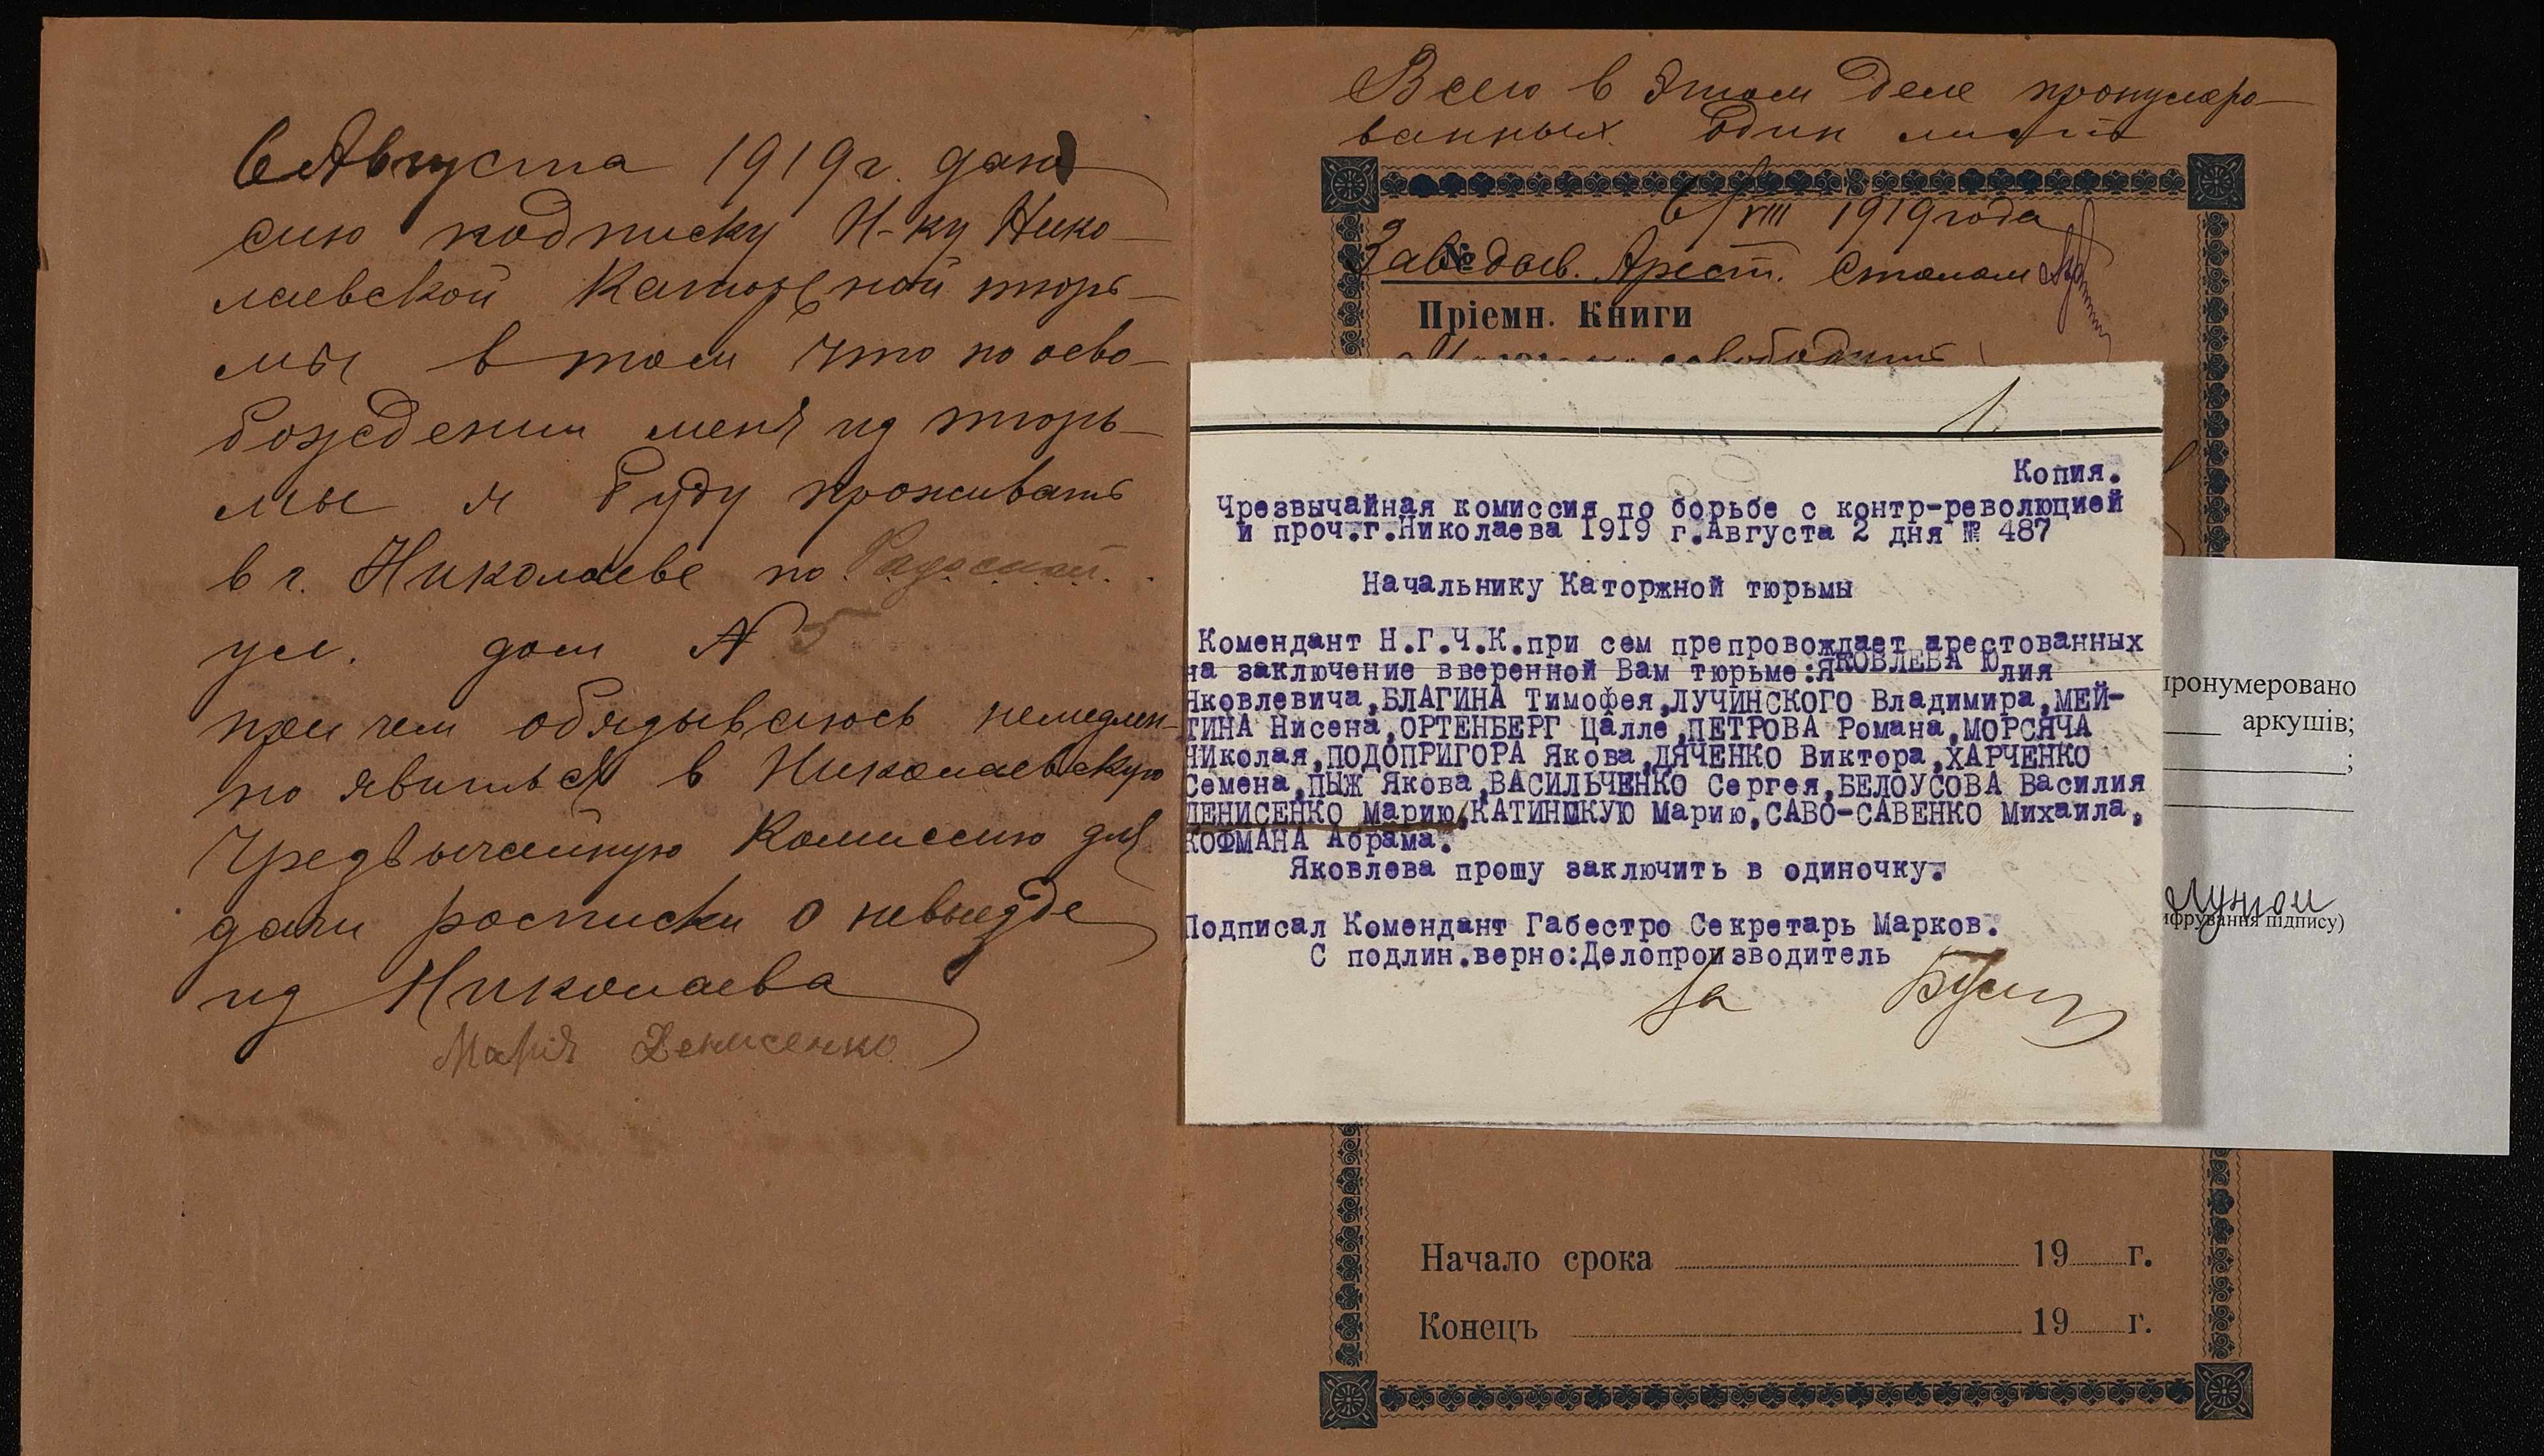 6 Августа 1919 г. даю
сию подписку Н-ку Нико-
лаевской Каторжной тюрь-
мы в том что по осво-
бождении меня из тюрь-
мы я буду проживать
в г. Николаеве по
ул. дом № 5
при чем обязываюсь немедлен-
но явиться в Николаевскую
Чрезвычайную Комиссию для
дачи росписки о невыезде
из Николаева
Марія Денисенко
Всего в этом деле пронумеро-
ванных один листъ
6/VIII 1919 года
Заведыв. Арест. Столом
№
Пріемн. Книги
1
Копия.
Чрезвычайная комиссия по борьбе с контр-революцией
и проч.г.Николаева 1919 г.Августа 2 дня № 487
Начальнику Каторжной тюрьмы
Комендант Н.Г.Ч.К.при сем препровождает арестованных
на заключение вверенной Вам тюрьме:ЯКОВЛЕВА Юлия
Яковлевича,БЛАГИНА Тимофея,ЛУЧИНСКОГО Владимира,МЕЙ-
ТИНА Нисена,ОРТЕНБЕРГ Цалле,ПЕТРОВА Романа,МОРСЯЧА
НИколая,ПОДОПРИГОРА Якова,ДЯЧЕНКО Виктора,ХАРЧЕНКО
Семена,ПЫЖ Якова,ВАСИЛЬЧЕНКО Сергея,БЕЛОУСОВА Василия
ДЕНИСЕНКО Марию,КАТИНШКУЮ Марию,САВО-САВЕНКО Михаила,
КОФМАНА Абрама.
Яковлева прошу заключить в одиночку.
Подписал Комендант Габестро Секретарь Марков.
С подлин.верно:Делопроизводитель
за
пронумеровано
аркушів;
;
ифрування підпису)
Начало срока 19 г.
Конецъ 19 г.